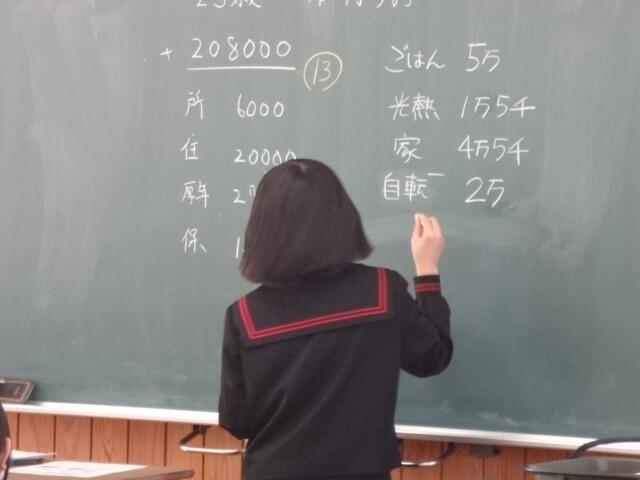 + 208000
⑬
所 6000
住 20000
厚年 2
保 1
ごはん 5万
光熱 1万5千
家 4万5千
自転 2万